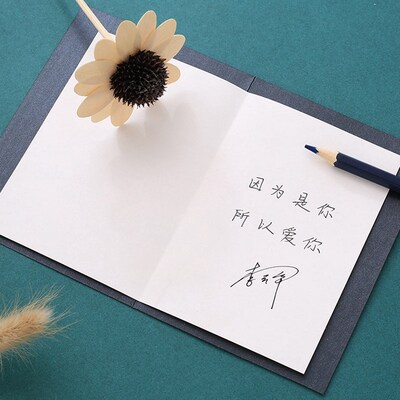 因为是你
所以爱你